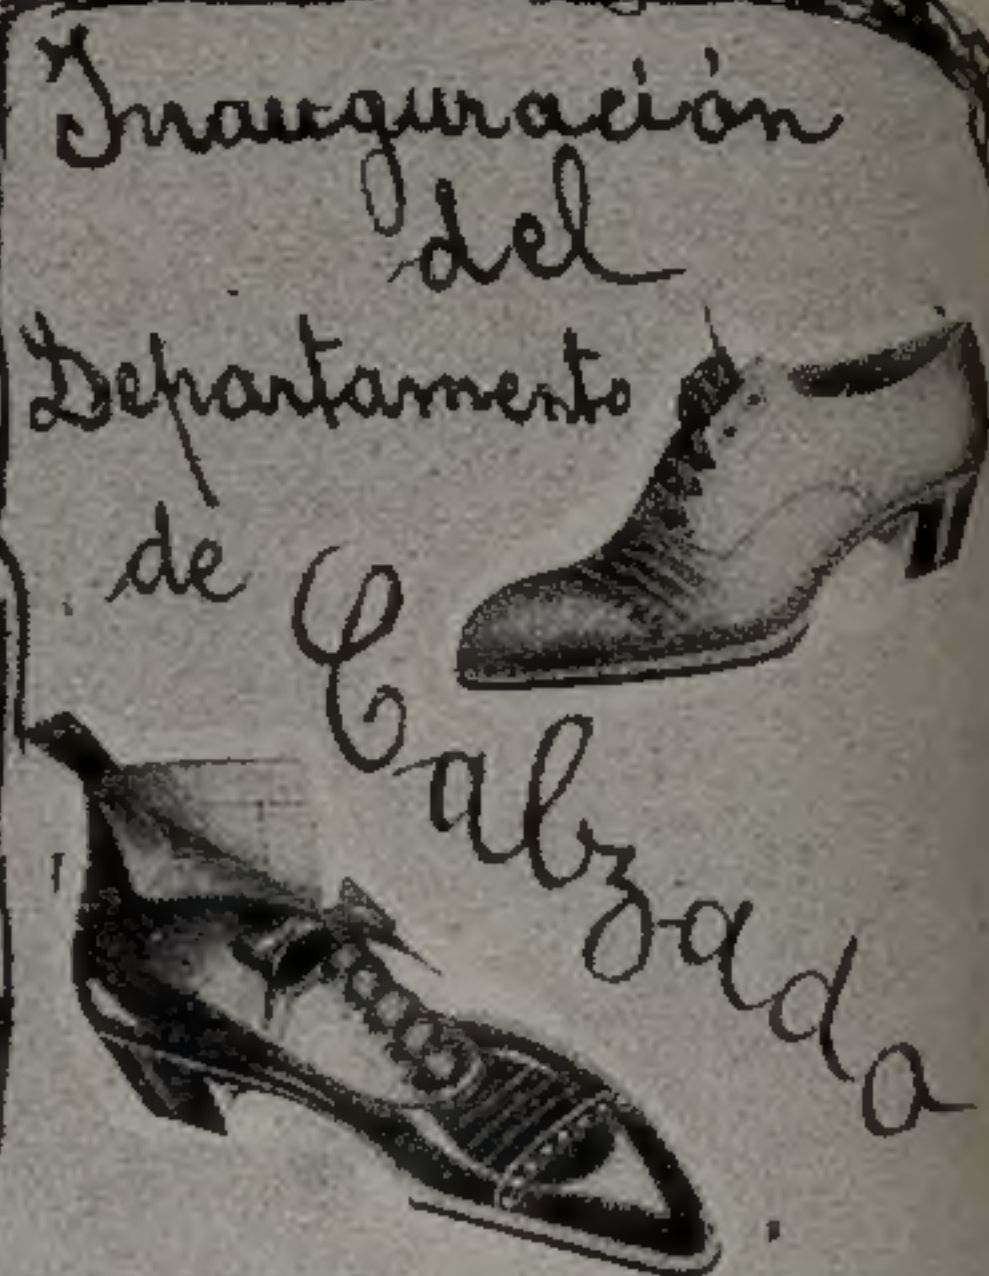 Inauguración
del
Departamento
de
Calzado